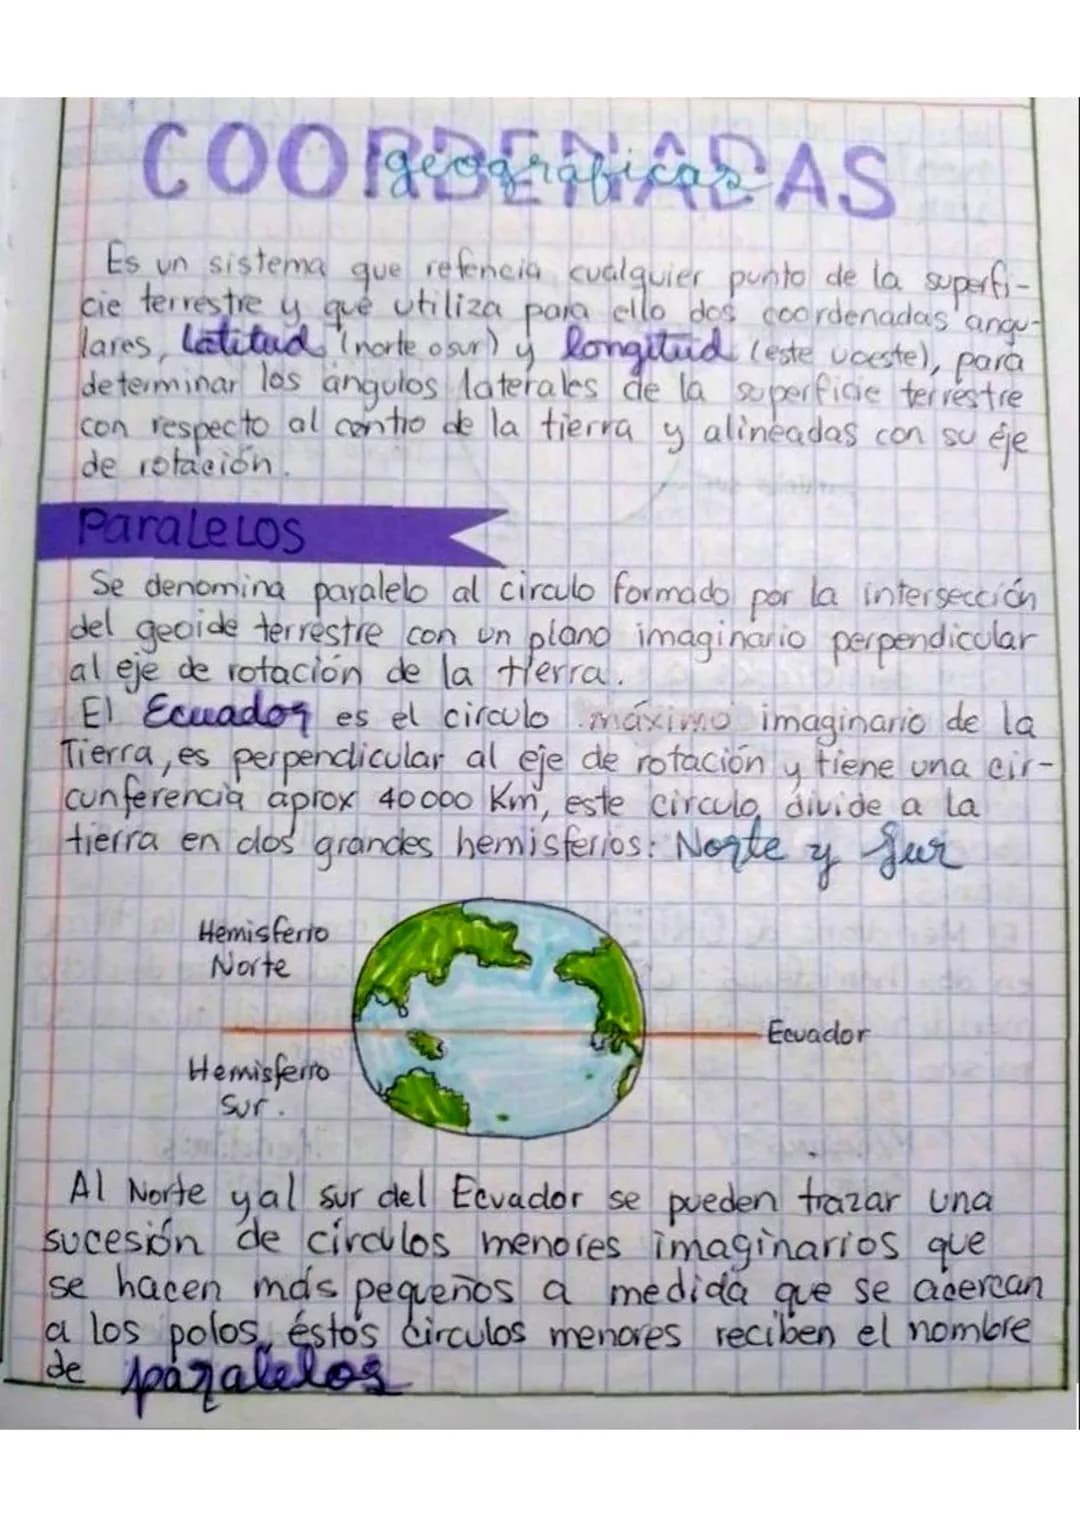 COORDENADAS
geográficas
Es un sistema que refencia cualquier punto de la superfi-
cie terrestre y que utiliza para ello dos coordenadas angu-
lares, Latitud (norte o sur) y longitud (este uoeste), para
determinar los ángulos laterales de la superficie terrestre
con respecto al centro de la tierra y alineadas con su eje
de rotación.
Paralelos
Se denomina paralelo al circulo formado por la intersección
del geoide terrestre con un plano imaginario perpendicular
al eje de rotación de la tierra.
El Ecuador es el circulo máximo imaginario de la
Tierra, es perpendicular al eje de rotación y tiene una cir-
cunferencia aprox 40000 Km, este circulo divide a la
tierra en dos grandes hemisferios: Norte y Sur
Hemisferio
Norte
Ecuador
Hemisferio
Sur.
Al Norte y al sur del Ecuador se pueden trazar una
sucesión de círculos menores imaginarios que
se hacen más pequeños a medida que se acercan
a los polos, éstos circulos menores reciben el nombre
de paralelos